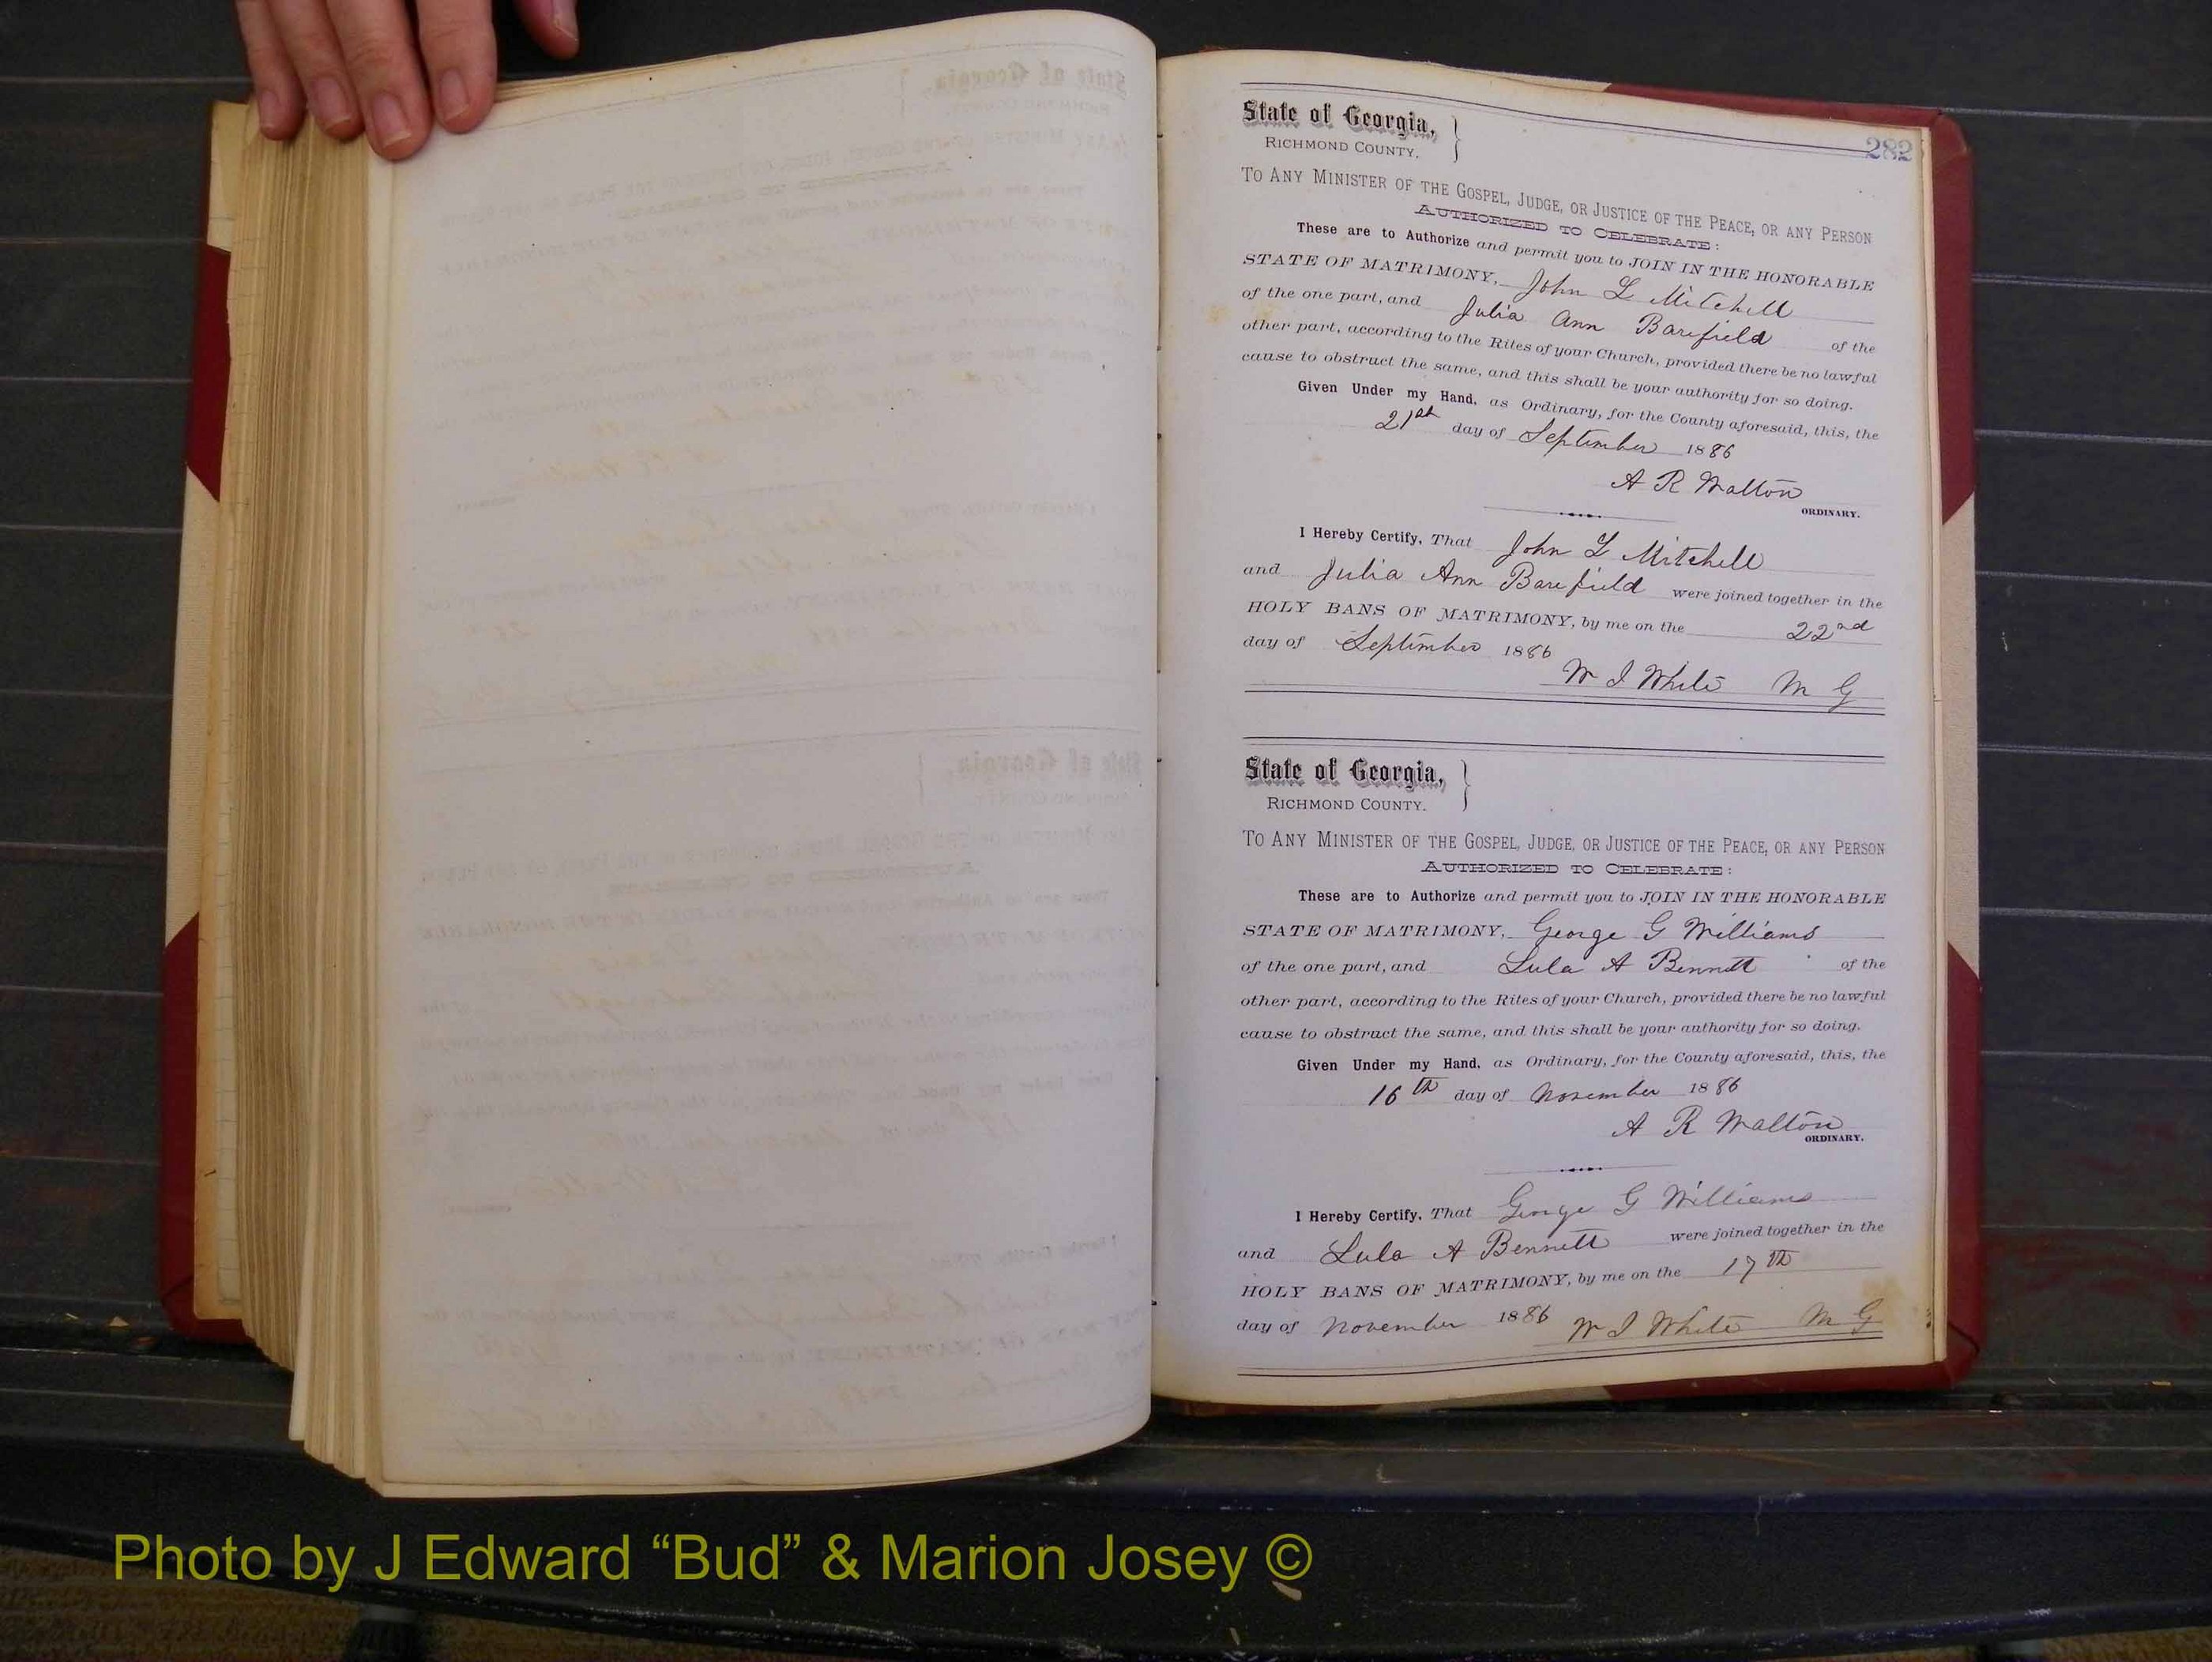 282
State of Georgia,
RICHMOND COUNTY.
TO ANY MINISTER OF THE GOSPEL, JUDGE, OR JUSTICE OF THE PEACE, OR ANY PERSON
AUTHORIZED TO CELEBRATE:
These are to Authorize and permit you to JOIN IN THE HONORABLE
STATE OF MATRIMONY, John L Mitchell
of the one part, and Julia Ann Barefield of the
other part, according to the Rites of your Church, provided there be no lawful
cause to obstruct the same, and this shall be your authority for so doing.
Given Under my Hand, as Ordinary, for the County aforesaid, this, the
21st day of September 1886
A R Walton
ORDINARY.
I Hereby Certify, That John L Mitchell
and Julia Ann Barefield were joined together in the
HOLY BANS OF MATRIMONY, by me on the 22nd
day of September 1886
W J White M G
State of Georgia,
RICHMOND COUNTY.
TO ANY MINISTER OF THE GOSPEL, JUDGE, OR JUSTICE OF THE PEACE, OR ANY PERSON
AUTHORIZED TO CELEBRATE:
These are to Authorize and permit you to JOIN IN THE HONORABLE
STATE OF MATRIMONY, George G Williams
of the one part, and Lula A Bennett of the
other part, according to the Rites of your Church, provided there be no lawful
cause to obstruct the same, and this shall be your authority for so doing.
Given Under my Hand, as Ordinary, for the County aforesaid, this, the
16th day of November 1886
A R Walton
ORDINARY.
I Hereby Certify, That George G Williams
and Lula A Bennett were joined together in the
HOLY BANS OF MATRIMONY, by me on the 17th
day of November 1886 W J White M G
Photo by J Edward “Bud” & Marion Josey ©